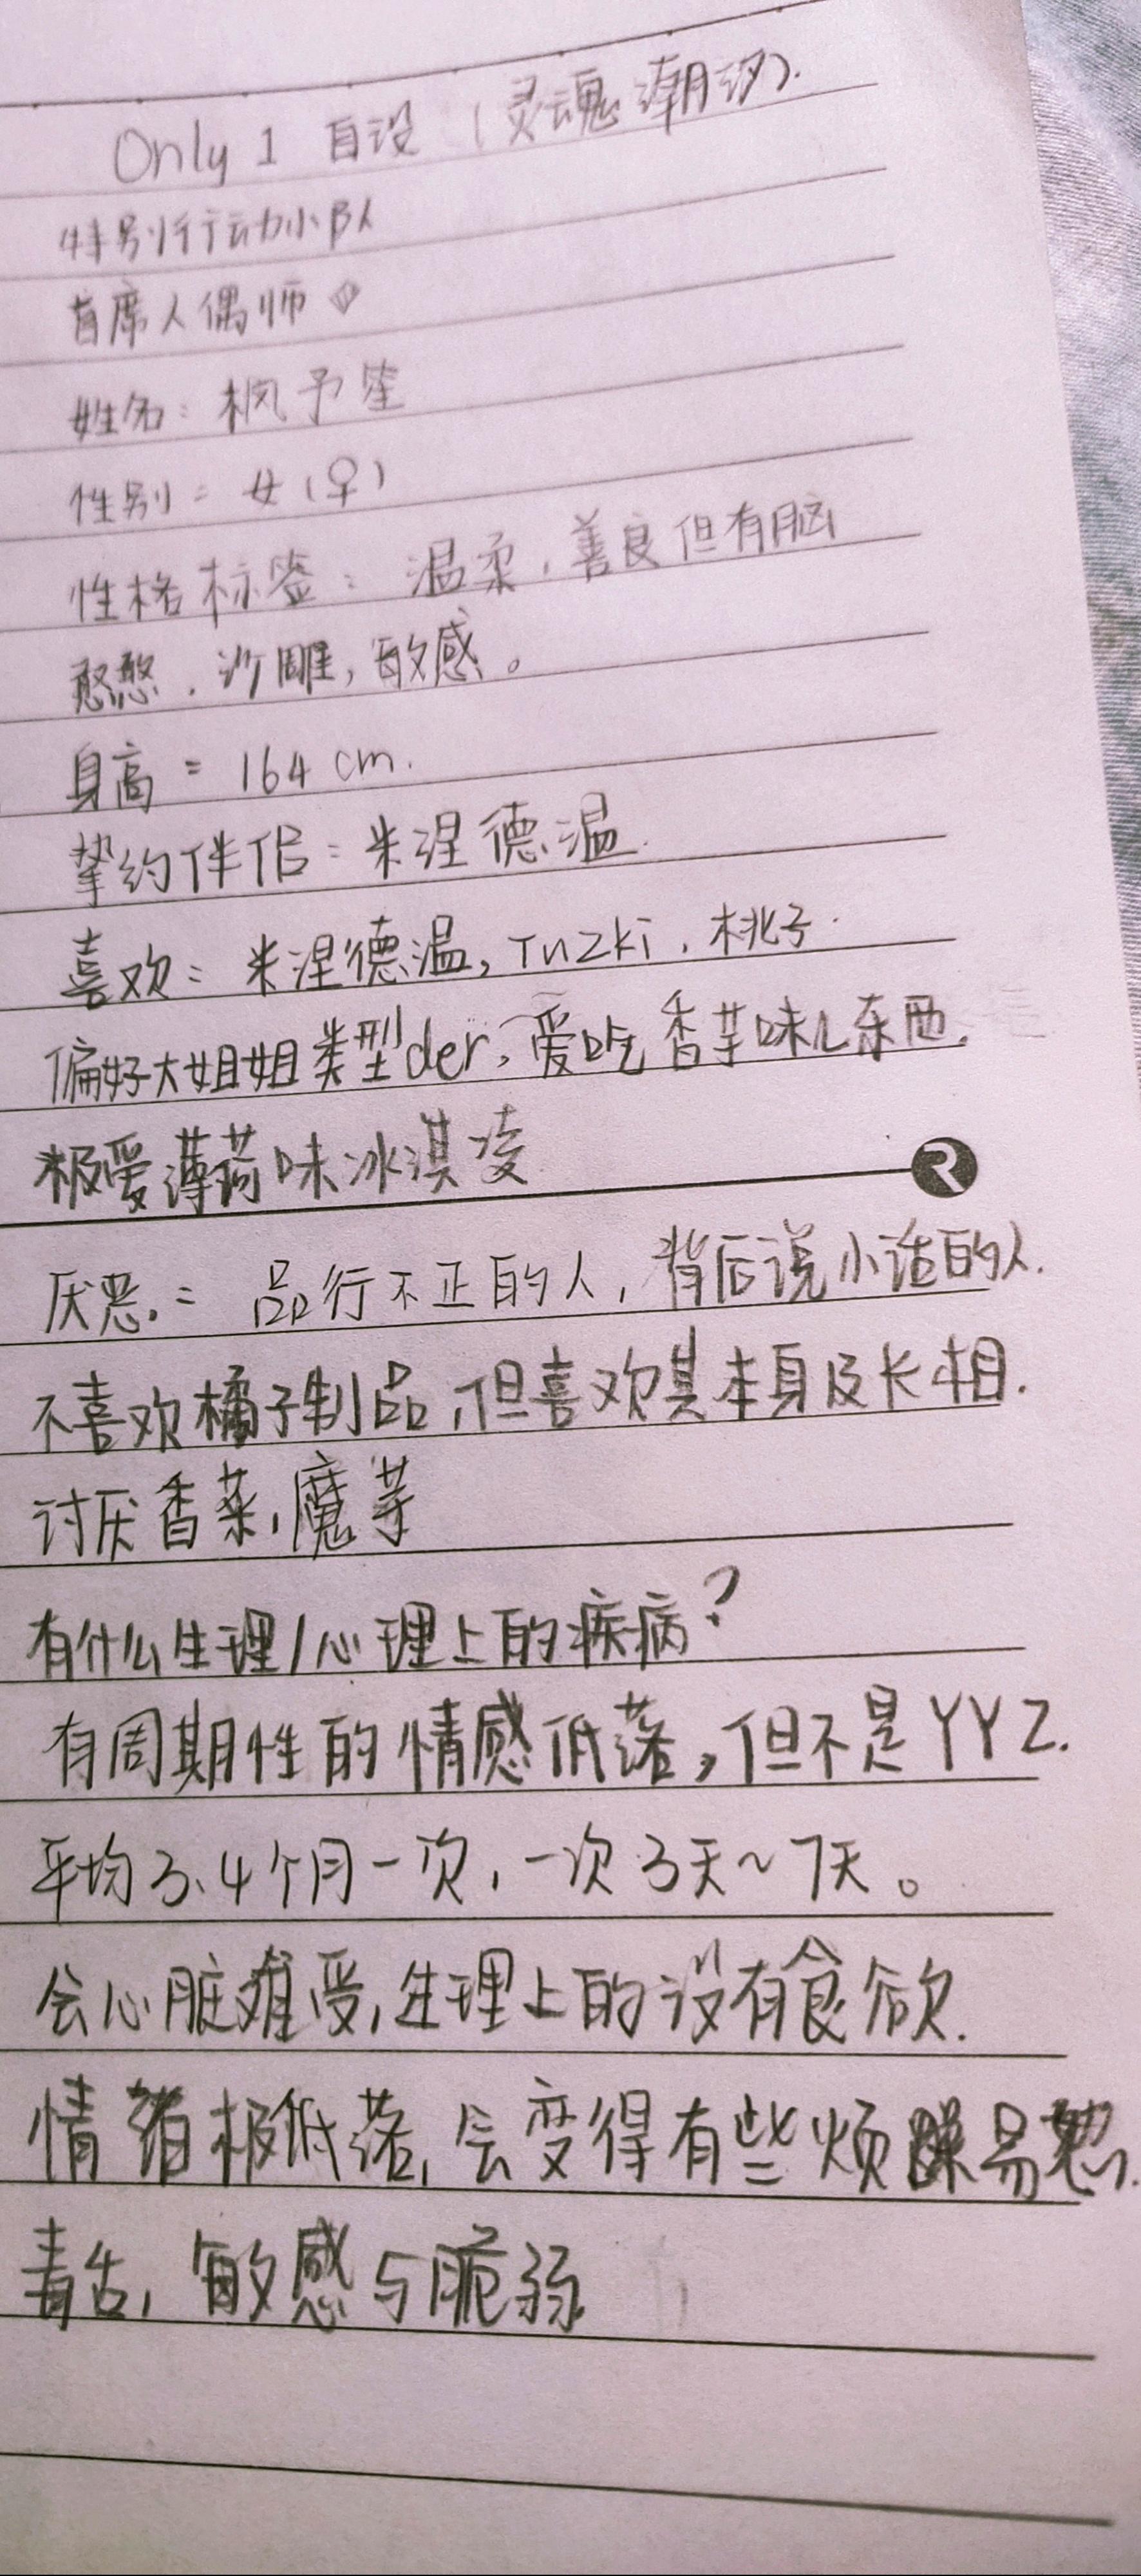 Only 1 自设（灵魂潮汐）.
特别行动小队
首席人偶师◇
姓名：枫予笙
性别：女（♀）
性格标签：温柔，善良但有脑
憨憨，沙雕，敏感。
身高：164 cm.
挚约伴侣：米涅德温.
喜欢：米涅德温，Tuzki，桃子.
偏好大姐姐类型der，爱吃香芋味儿东西.
极爱薄荷味冰淇凌
R
厌恶：品行不正的人，背后说小话的人.
不喜欢橘子制品，但喜欢其本身及长相.
讨厌香菜，魔芋
有什么生理/心理上的疾病？
有周期性的情感低落，但不是YYZ.
平均3、4个月一次，一次3天~7天。
会心脏难受，生理上的没有食欲.
情绪极低落，会变得有些烦躁易怒.
毒舌，敏感与脆弱